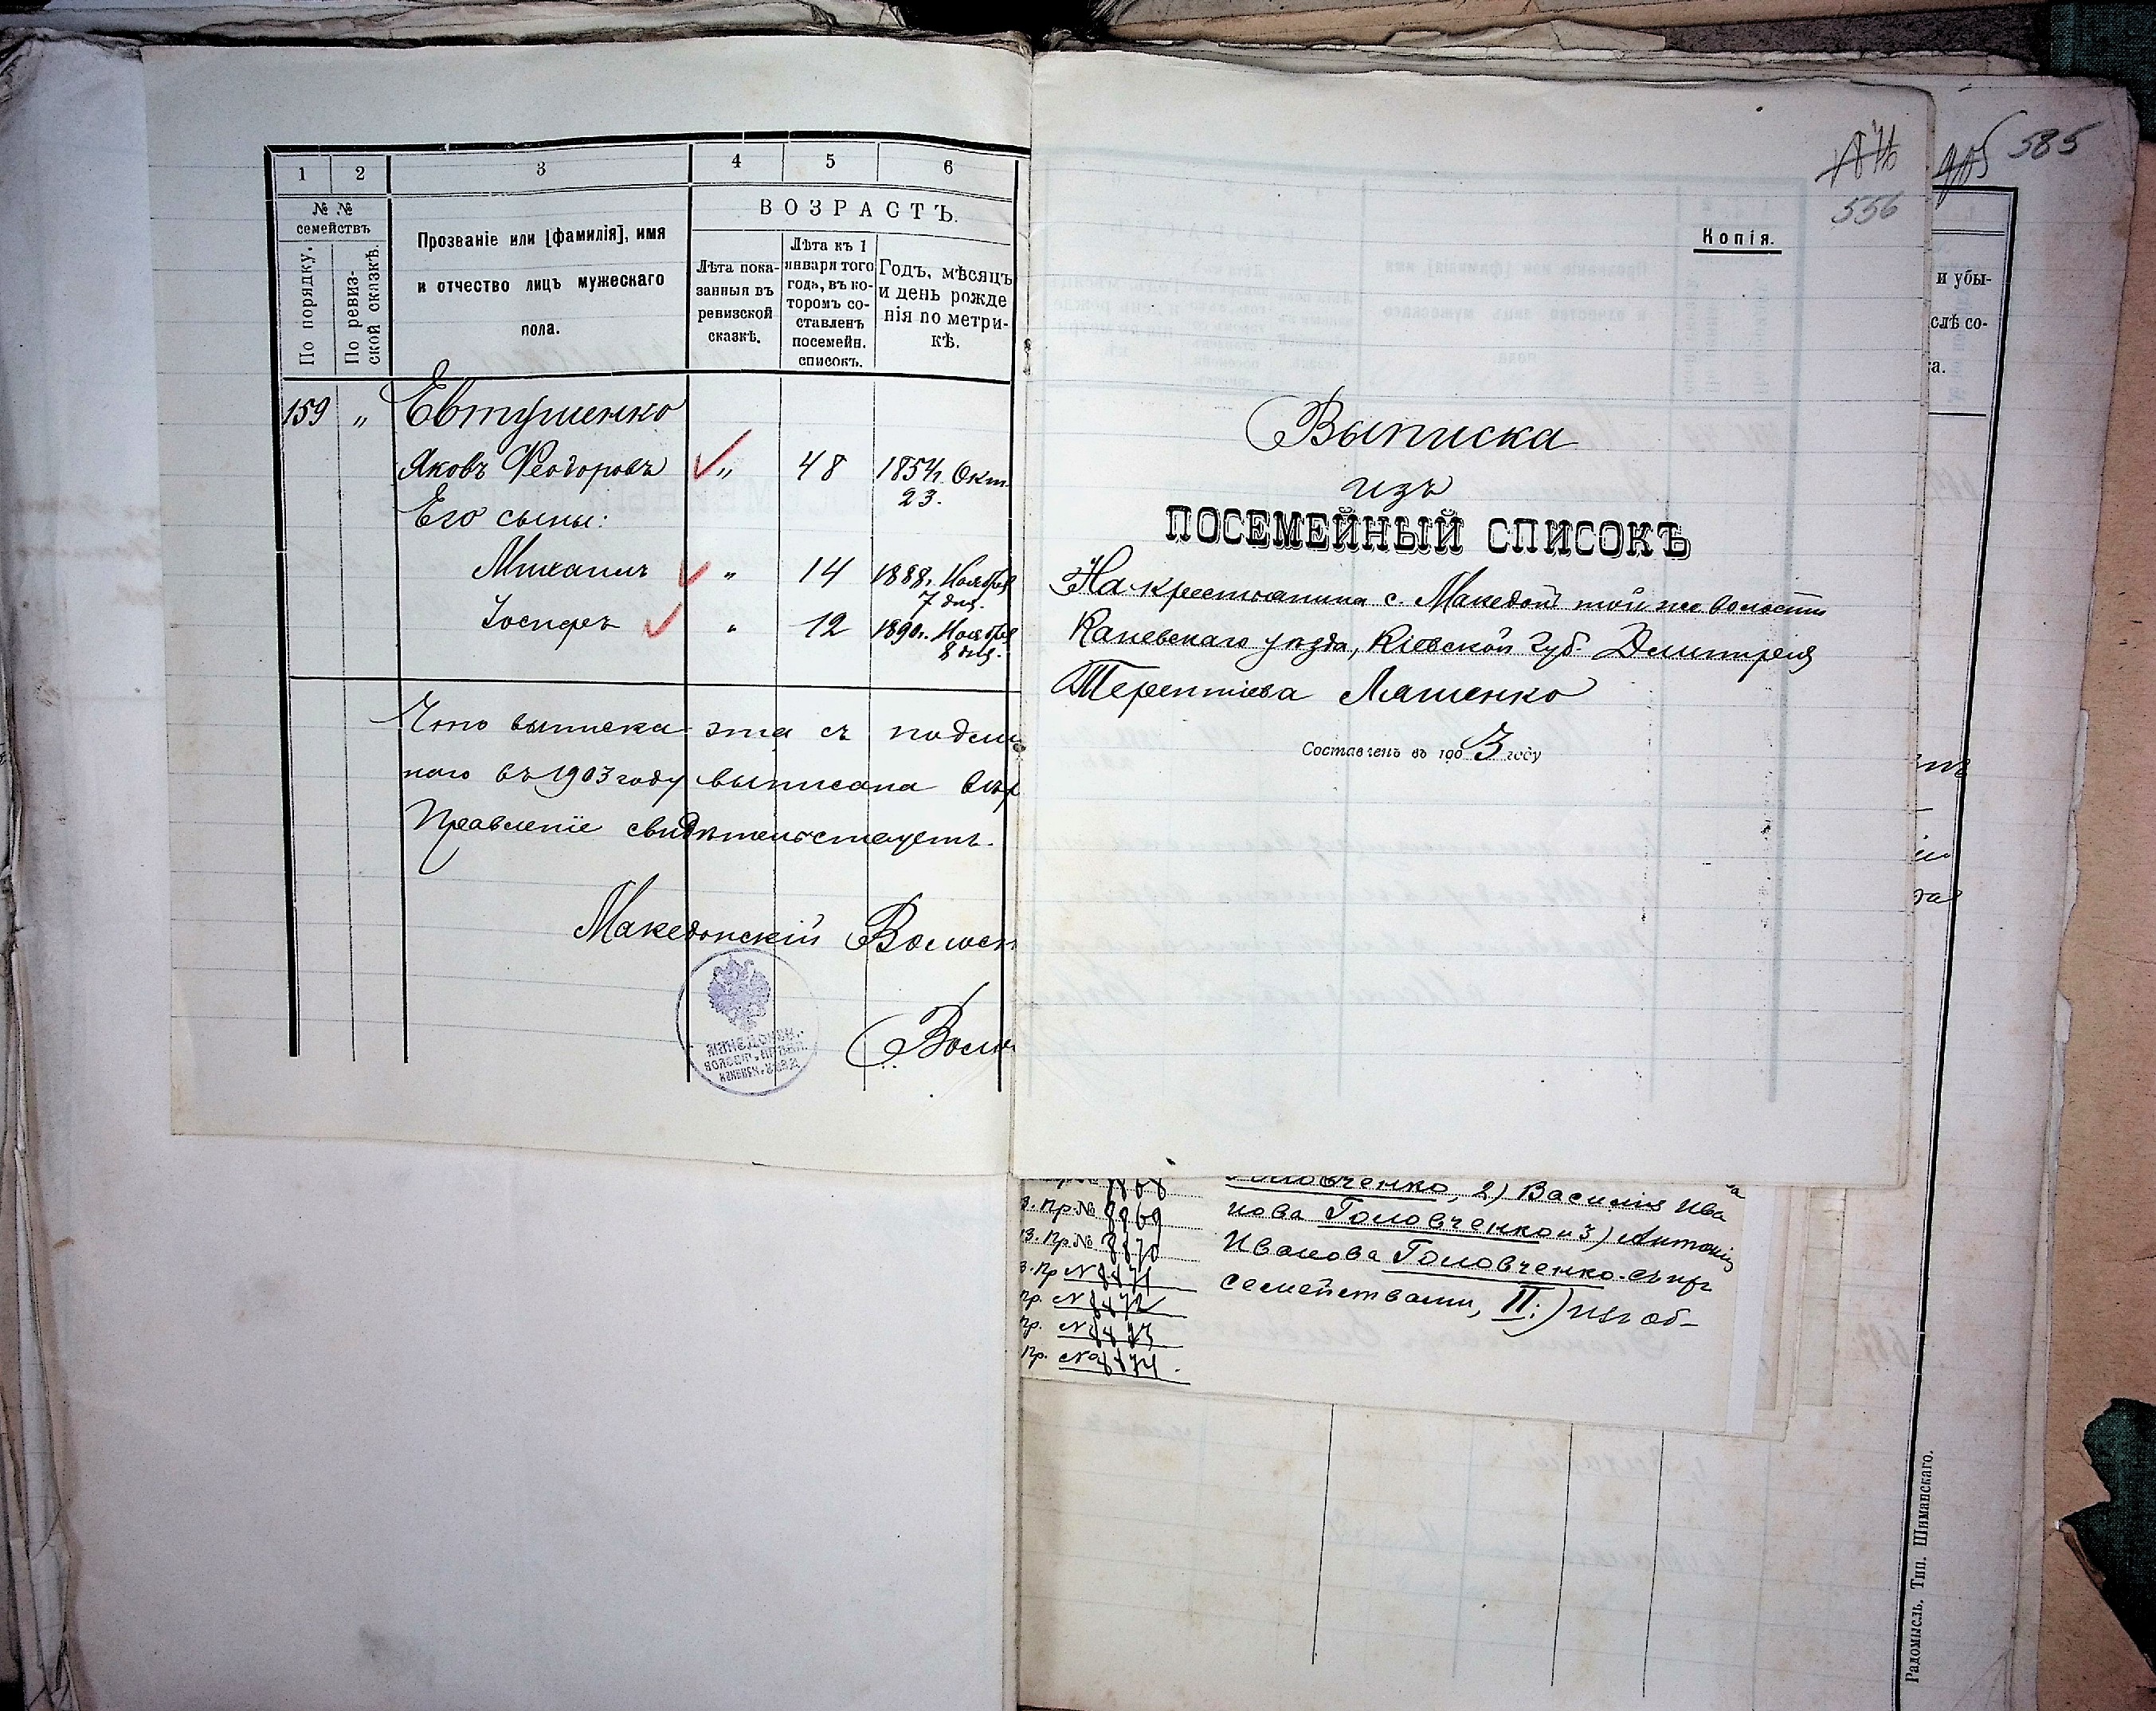 1 2 3 4 5 6
№ № семействъ
По порядку.
По ревиз-
ской сказкѣ.
Прозваніе или [фамилія], имя
и отчество лицъ мужескаго
пола.
ВОЗРАСТЪ.
Лѣта пока-
занныя въ
ревизской
сказкѣ.
Лѣта къ 1
января того
года, въ ко-
торомъ со-
ставленъ
посемейн.
списокъ.
Годъ, мѣсяцъ
и день рожде
нія по метри-
кѣ.
159 „ Евтушенко
Яковъ Феодоровъ „ 48 1854 г. Окт.
23.
Его сыны:
Михаилъ „ 14 1888 г. Ноября
7 дня.
Іосифъ „ 12 1890 г. Ноября
8 дня.
Что выписка эта съ подли
наго въ 1903 году выписана вѣр
Правленіе свидѣтельствуетъ.
Македонскій Волост
Воло
МАКЕДОНСК.
ВОЛОСТ. ПРАВЛ.
КАНЕВСК. УѢЗД.
556
Копія.
Выписка
изъ
ПОСЕМЕЙНЫЙ СПИСОКЪ
На крестьянина с. Македон той же волости
Каневскаго уѣзда, Кіевской губ. Дмитрія
Терентіева Ляшенко
Составленъ въ 1903 году
585
и убы-
слѣ со-
ка.
Головченко, 2) Василія Ива
нова Головченко и 3) Антонія
Иванова Головченко съ ихъ
семействами, II:) изъ об-
8868
з. Пр. № 8869
з. Пр. № 8870
з. Пр № 8871
Пр. № 8872
Пр. № 8873
Пр. № 8874
Радомысль. Тип. Шиманскаго.